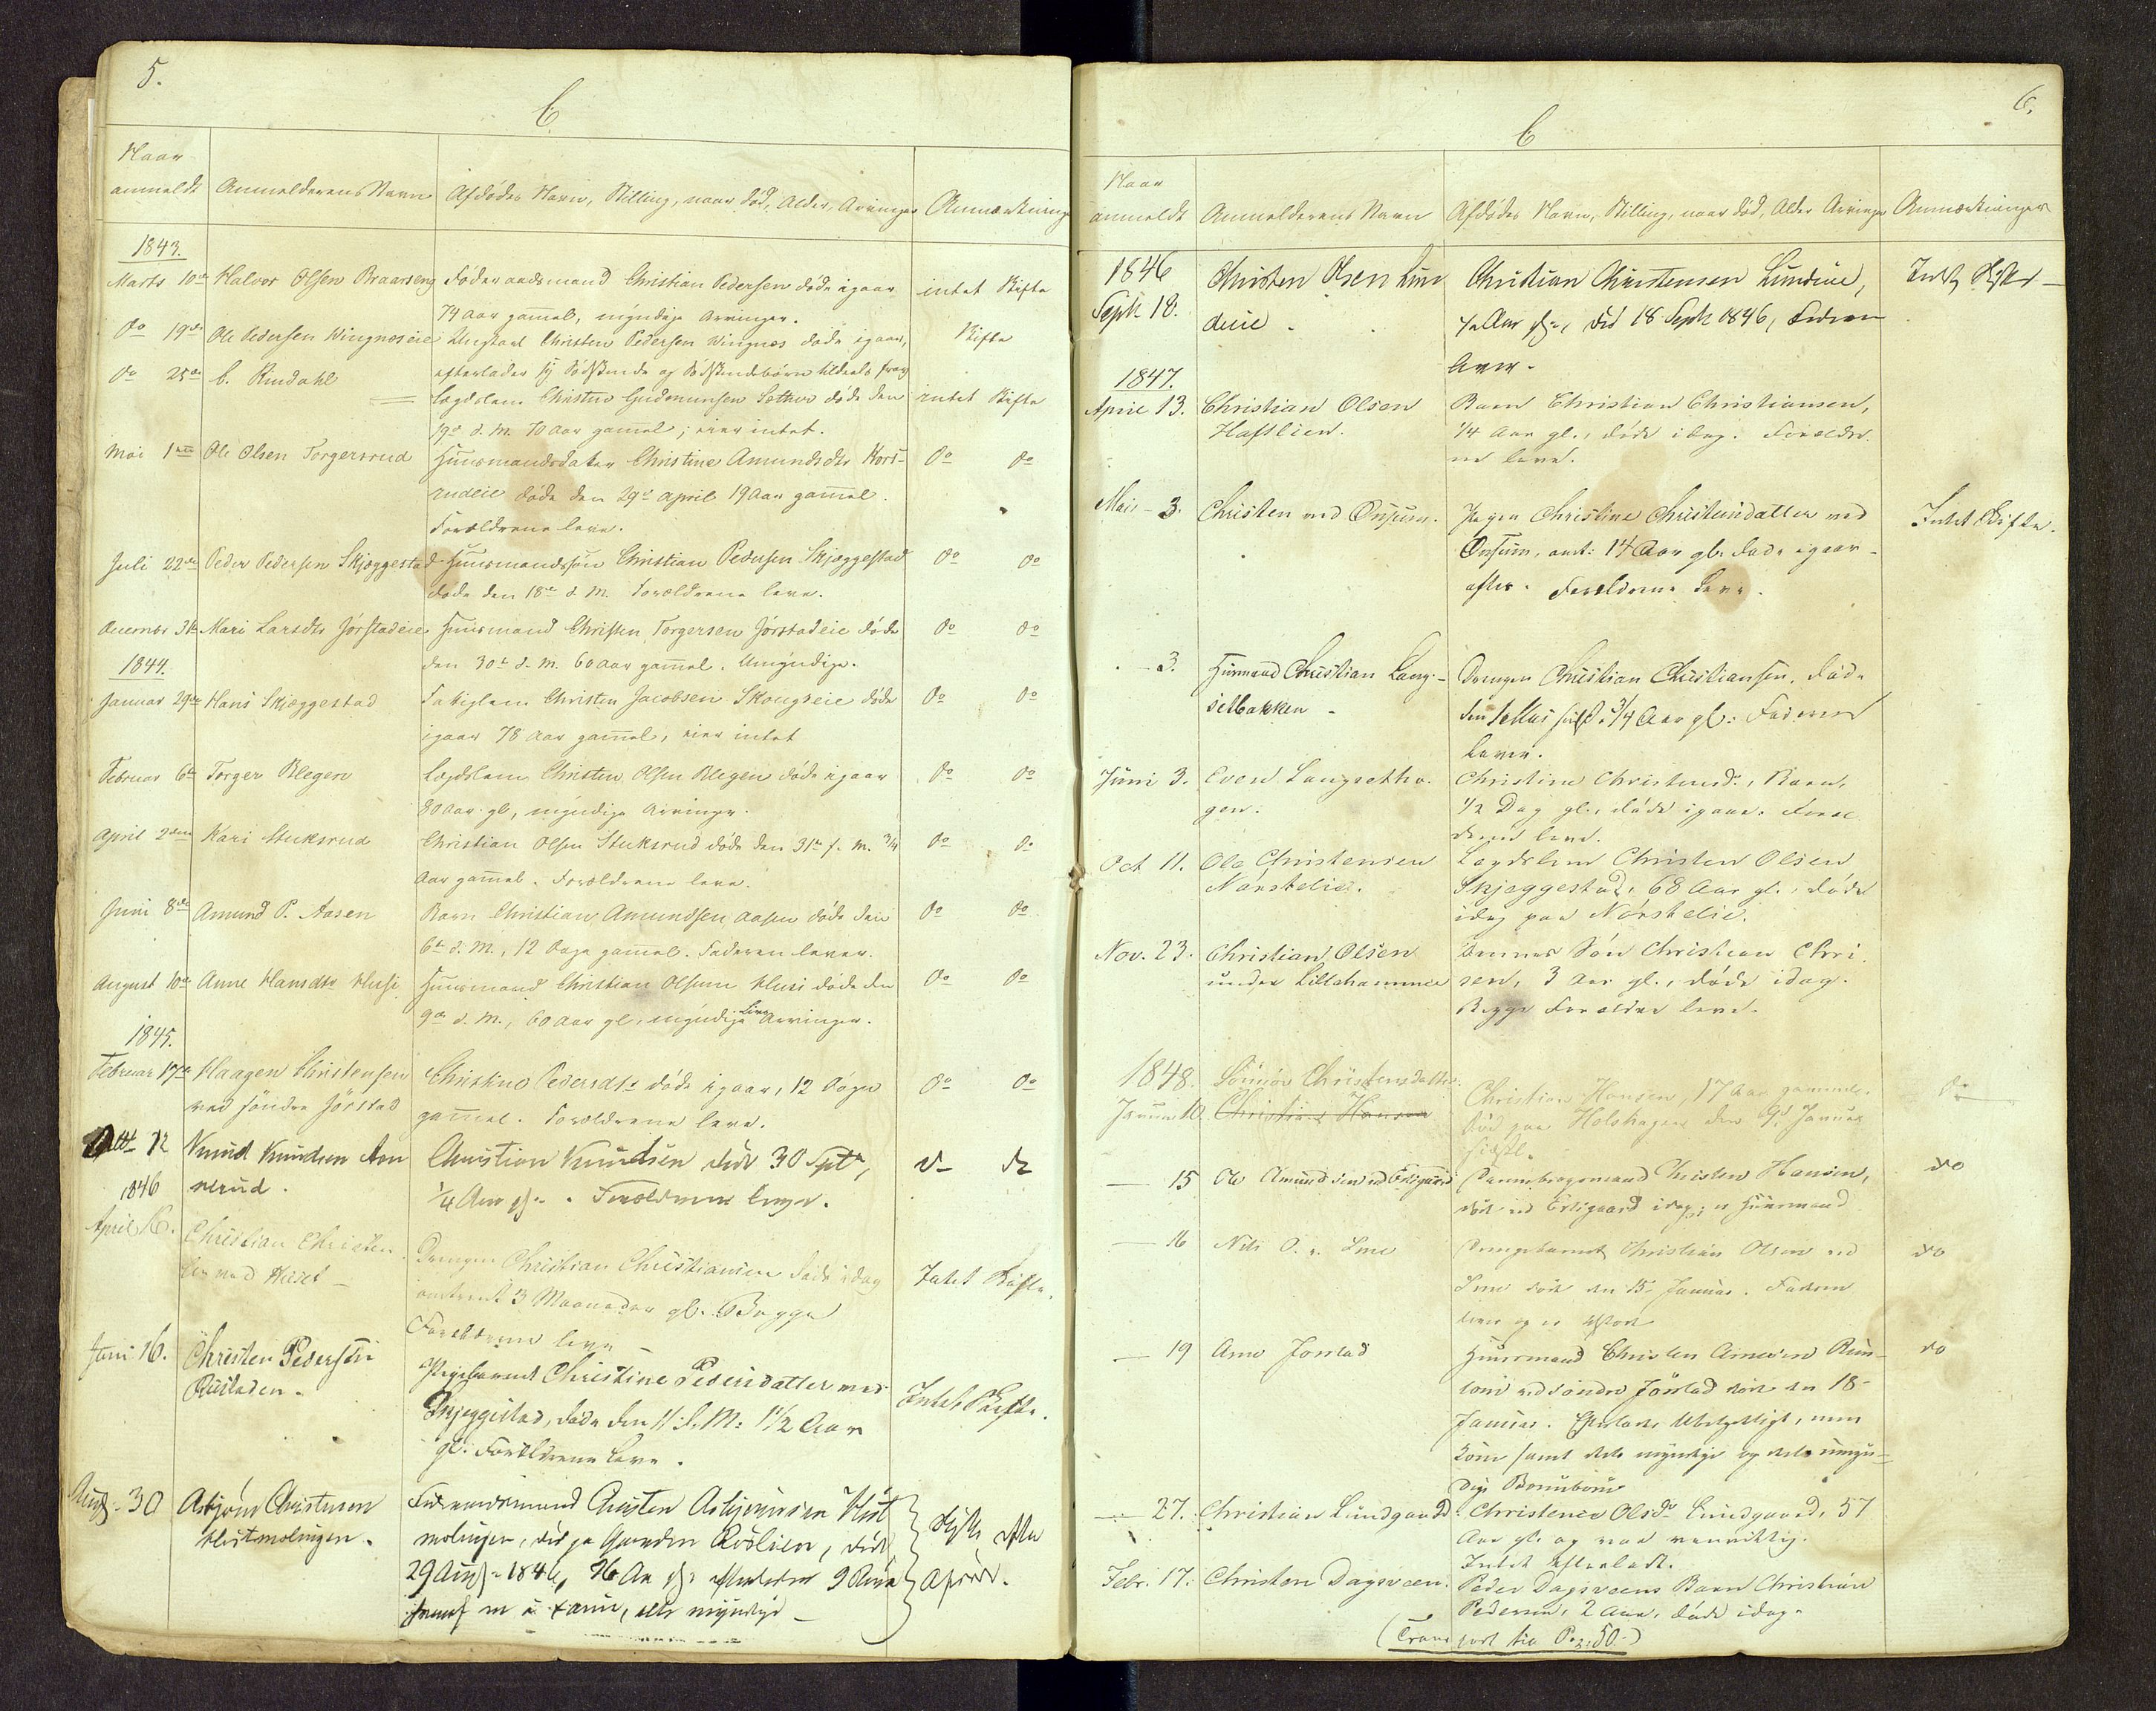 5.
C
Naar
anmeldt
Anmelderens Navn
Afdødes Navn, Stilling, naar død, Alder, Arvinger
Anmærkning
1843.
Marts 10de
Halvor Olsen Braarseng
Føderaadsmand Christian Pedersen døde igaar
74 Aar gamel, myndige Arvinger.
intet Skifte
Do 19de
Ole Pedersen Wingnæseie
Ungkarl Christen Pedersen Wingnæs døde igaar,
efterlader sig Sødskende og Sødskendebørn tildeels frav.
Skifte
Do 25de
C. Rindahl
Lægdslem Christen Gudmunsen Sethre døde den
19de d. M. 70 Aar gammel; eier intet.
intet Skifte
Mai 1ste
Ole Olsen Torgersrud
Huusmandsdatter Christine Amundsdtr Kors-
rudeie døde den 29de April 19 Aar gamel.
Forældrene leve.
Do Do
Juli 22de
Peder Pedersen Skjæggestad
Huusmandssøn Christian Pedersen Skjæggestad
døde den 18de d. M. Forældrene leve.
Do Do
December 31te
Mari Larsdtr Jørstadeie
Huusmand Christen Torgersen Jørstadeie døde
den 30te d. M. 60 Aar gamel. Umyndige.
Do Do
1844.
Januar 29de
Hans Skjæggestad
Fattiglem Christen Jacobsen Skougseie døde
igaar 78 Aar gamel, eier intet
Do Do
Februar 6te
Torger Blegen
Lægdslem Christen Olsen Blegen døde igaar
80 Aar gl, myndige Arvinger.
Do Do
April 2den
Kari Stuksrud
Christian Olsen Stuksrud døde den 31te f. M. 3/4
Aar gamel. Forældrene leve.
Do Do
Juni 8de
Amund P. Aasen
Barn Christian Amundsen Aasen døde den
6te d. M., 12 Dage gamel. Faderen lever.
Do Do
August 10de
Anne Hansdtr Husi
Huusmand Christian Olsen Husi døde den
9de d. M., 60 Aar gl, myndige Livs Arvinger.
Do Do
1845.
Februar 17de
Haagen Christensen
ved søndre Jørstad
Christine Pedersdtr døde igaar, 12 Dage
gammel. Forældrene leve.
Do Do
Octr 12
Knud Knudsen
Christian Knudsen død 30 Septr,
1/4 Aar gl. Forældrene leve.
do do
1846
April 6.
Christian Christen
sen ved Huset
Drengen Christian Christiansen døde idag
omtrent 3 Maaneder gl. Begge
Forældrene leve
Intet Skifte.
Juni 16.
Christen Pedersen
Rustaden.
Pigebarnet Christine Pedersdatter ved
Skjeggestad, døde den 11 d. M: 1 1/2 Aar
gl. Forældrene leve.
Intet Skifte.
Aug. 30
Asbjørn Christensen
Hustmolingen.
Føderaadsmand Christen Asbjørnsen Hust
molingen, død paa Gaarden Røslien, død
29 Aug. 1846, 76 Aar gl. efterlader
alle myndige
Skifte efter
6.
C
Naar
anmeldt
Anmelderens Navn
Afdødes Navn, Stilling, naar død, Alder Arvinger
Anmærkninger
1846
Septr 18.
Christen Olsen Lun
deeie.
Christian Christensen Lundeie,
Aar gl., død 18 Septr 1846, Faderen
lever.
Intet Skifte
1847.
April 13.
Christian Olsen
Hafslien.
Barn Christian Christiansen,
1/4 Aar gl., døde idag. Forældre
ne leve.
Mai - 3.
Christen ved Onsum.
Pigen Christine Christensdatter ved
Onsum, omt: 14 Aar gl. døde igaar
aftes. Forældrene leve.
Intet Skifte.
- 3.
Huusmand Christian Lang-
setbakken
Drengen Christian Christiansen, døde
den 1 Mai sidst: 3/4 Aar gl: Faderen
lever.
Juni 3.
Even Langsetha
gen.
Christine Christensd., Barn,
1/2 Dag gl., døde igaar. Foræl
drene leve.
Oct 11.
Ole Christensen
Nørstelie.
Lægdslem Christen Olsen
Skjeggestad, 68 Aar gl., døde
idag paa Nørstelie.
Nov. 23.
Christian Olsen
under Lillehammer
Dennes Søn Christian Chri
sen, 3 Aar gl., døde idag.
Begge Forældre leve.
1848.
Januar 10
Sønnøv Christensdatter
Christian Hansen
Christian Hansen, 17 Aar gammel.
død paa Holshagen den 9. Januar
sidstl.
Do
- 15
Ole Amundsen ved Erlsgaard
Dannebrogsmand Christen Hansen,
død ved Erlsgaard idag; er Huusmand
do
- 16
Nils O. v. Lme
Drengebarnet Christian Olsen ved
døde den 15 Januar. Faderen
lever og er
do
- 19
Arne Jørstad
Huusmand Christen Arnesen Rum-
ved søndre Jørstad døde den 18
Januar. Efterlader Ubetydeligt, men
Kone samt dels myndige og dels umyn-
dige Børnebørn
do
- 27.
Christian Lundgaard.
Christence Olsdr Lundgaard, 57
Aar gl. og var vanvittig.
Intet efterladt.
Febr. 17.
Christen Dagsveen.
Peder Dagsveens Barn Christian
Pedersen, 2 Aar, døde idag.
(Transport til Pag. 50.)